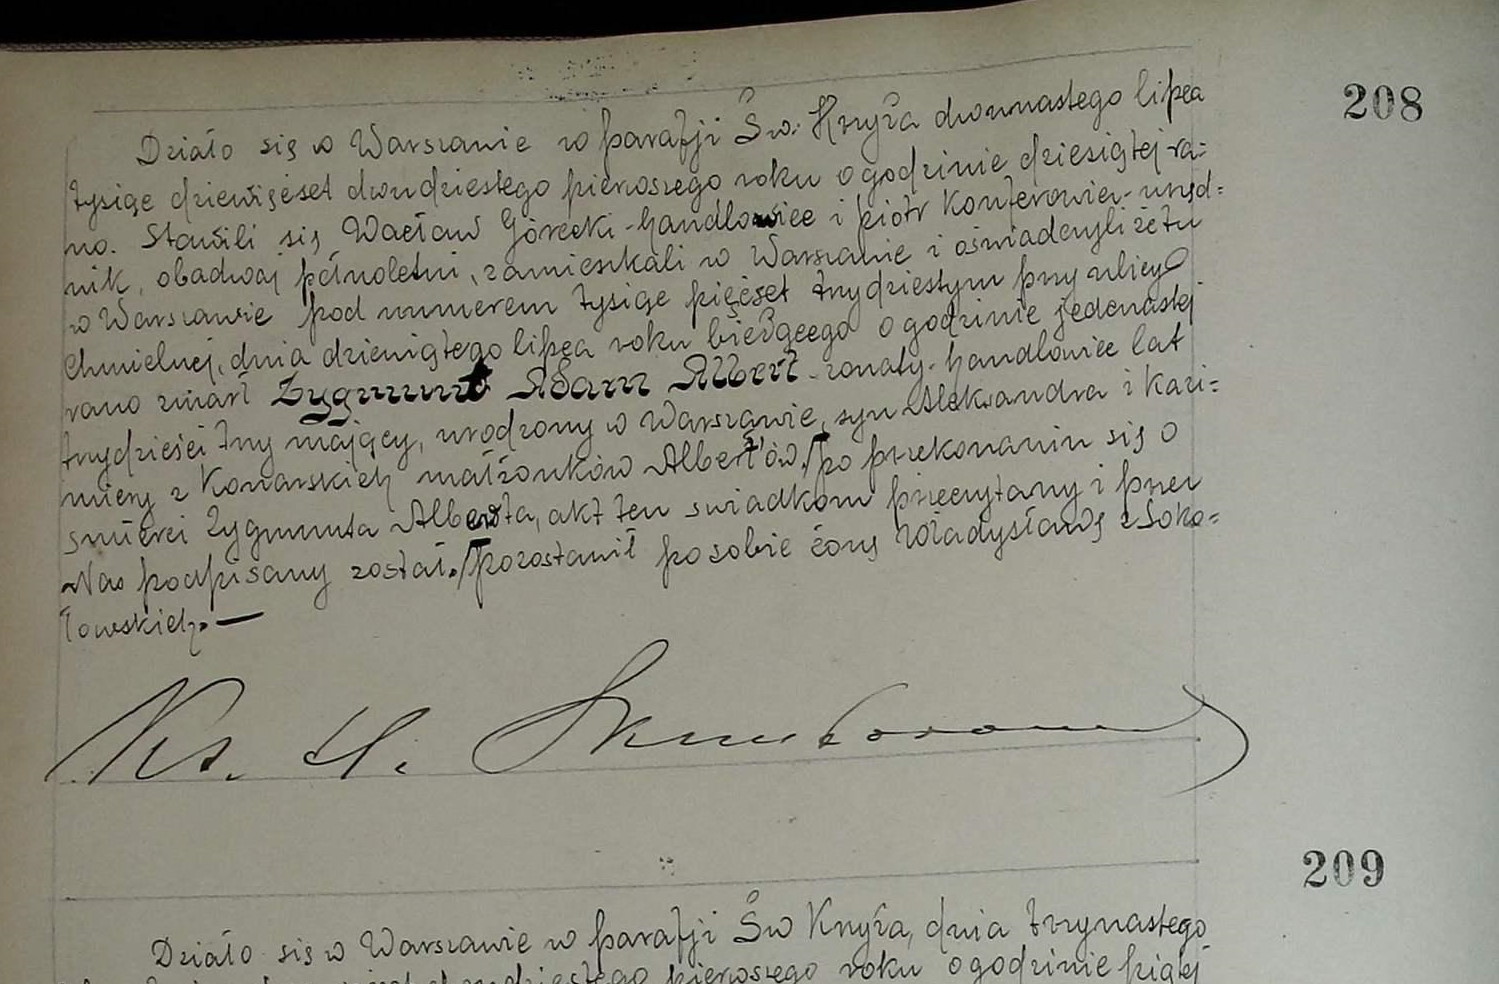 208
Działo się w Warszawie w parafji Św. Krzyża dwunastego lipca
tysiąc dziewięćset dwudziestego pierwszego roku o godzinie dziesiątej ra=
no. Stawili się Wacław Górecki - handlowiec i Piotr Konferowicz - urzęd=
nik, obadwaj pełnoletni, zamieszkali w Warszawie i oświadczyli że tu
w Warszawie pod numerem tysiąc pięćset trzydziestym przy ulicy
Chmielnej, dnia dziewiątego lipca roku bieżącego o godzinie jedenastej
rano zmarł Zygmunt Adam Albert - żonaty - handlowiec lat
trzydzieści trzy mający, urodzony w Warszawie, syn Aleksandra i Kazi=
miery z Konarskich małżonków Albert'ów./po przekonaniu się o
śmierci Zygmunta Alberta, akt ten świadkom przeczytany i przez
Nas podpisany został./pozostawił po sobie żonę Władysławę z Soko=
łowskich. —
Ks. H.
209
Działo się w Warszawie w parafji Św Krzyża, dnia trzynastego
pierwszego roku o godzinie piątej